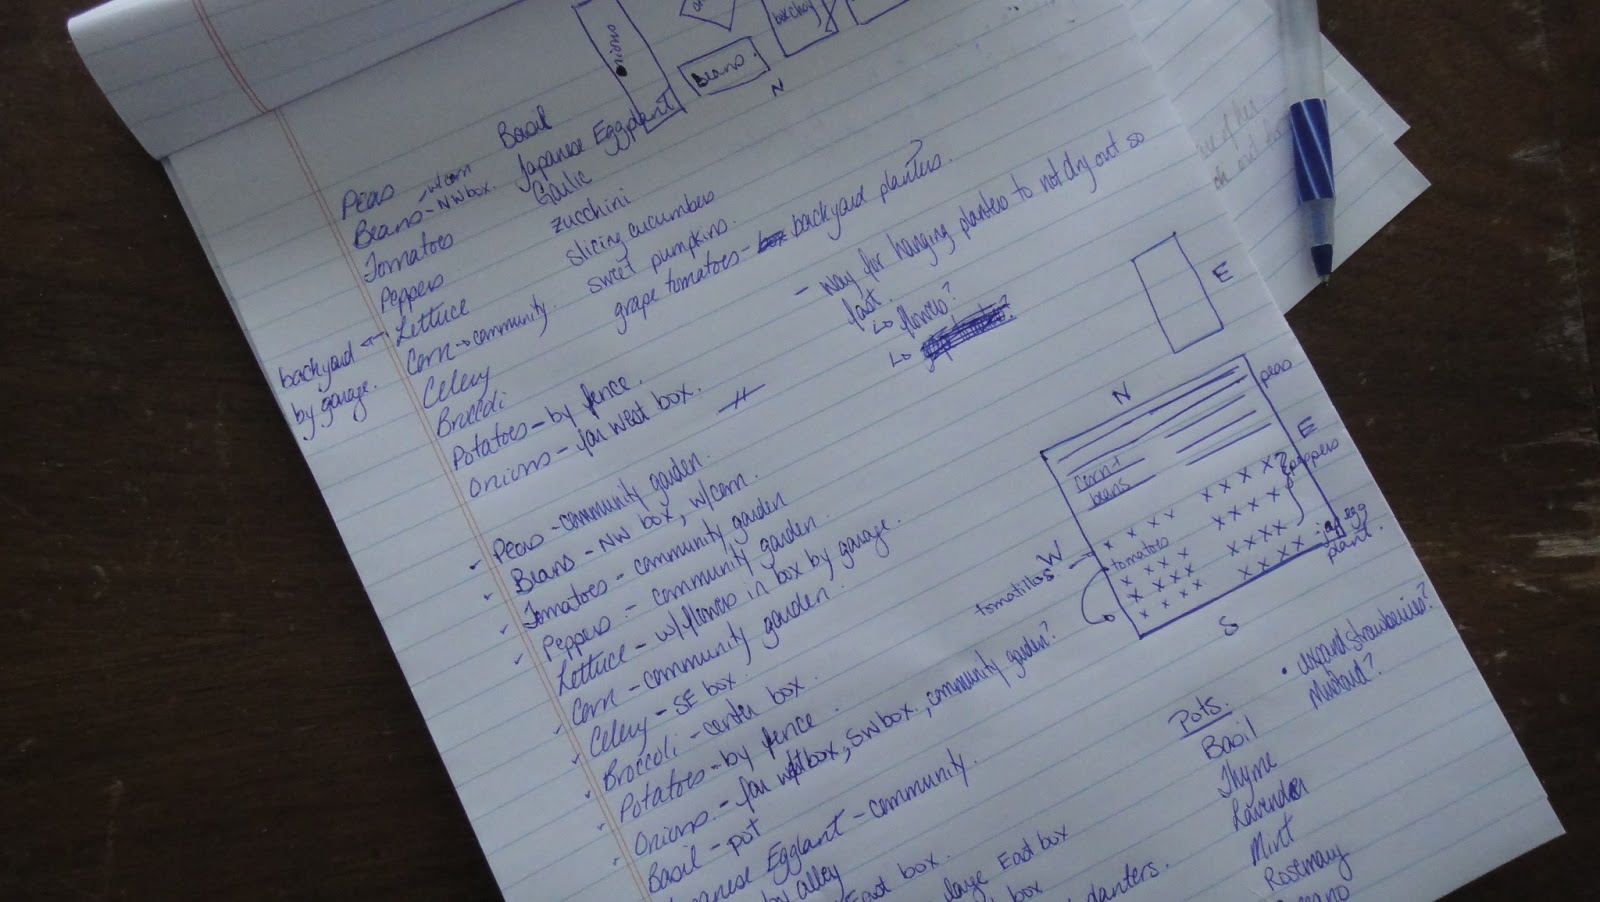 Onions
Beans.
bokchoy
N
Peas
Beans - NW box. w/corn
Tomatoes
Peppers
Lettuce
backyard by garage.
Corn → community.
Celery
Broccoli
Potatoes - by fence.
Onions - far west box.
Basil
Japanese Eggplant
Garlic
zucchini
slicing cucumbers
sweet pumpkins.
grape tomatoes - backyard planters.
- way for hanging planters to not dry out so
fast.
↳ flowers?
↳
E
N
peas
E
corn +
beans
peppers
tomatoes
W
tomatillos
jap egg
plant.
S
Peas - community garden.
Beans - NW box, w/corn.
Tomatoes - community garden
Peppers - community garden.
Lettuce - w/flowers in box by garage.
Corn - community garden.
Celery - SE box.
Broccoli - center box.
Potatoes - by fence.
Onions - far west box, SW box, community garden?
Basil - pot
Japanese Eggplant - community.
by alley
East box.
large East box
box
planters.
• expand strawberries?
Mustard?
Pots.
Basil
Thyme
Lavender
Mint
Rosemary